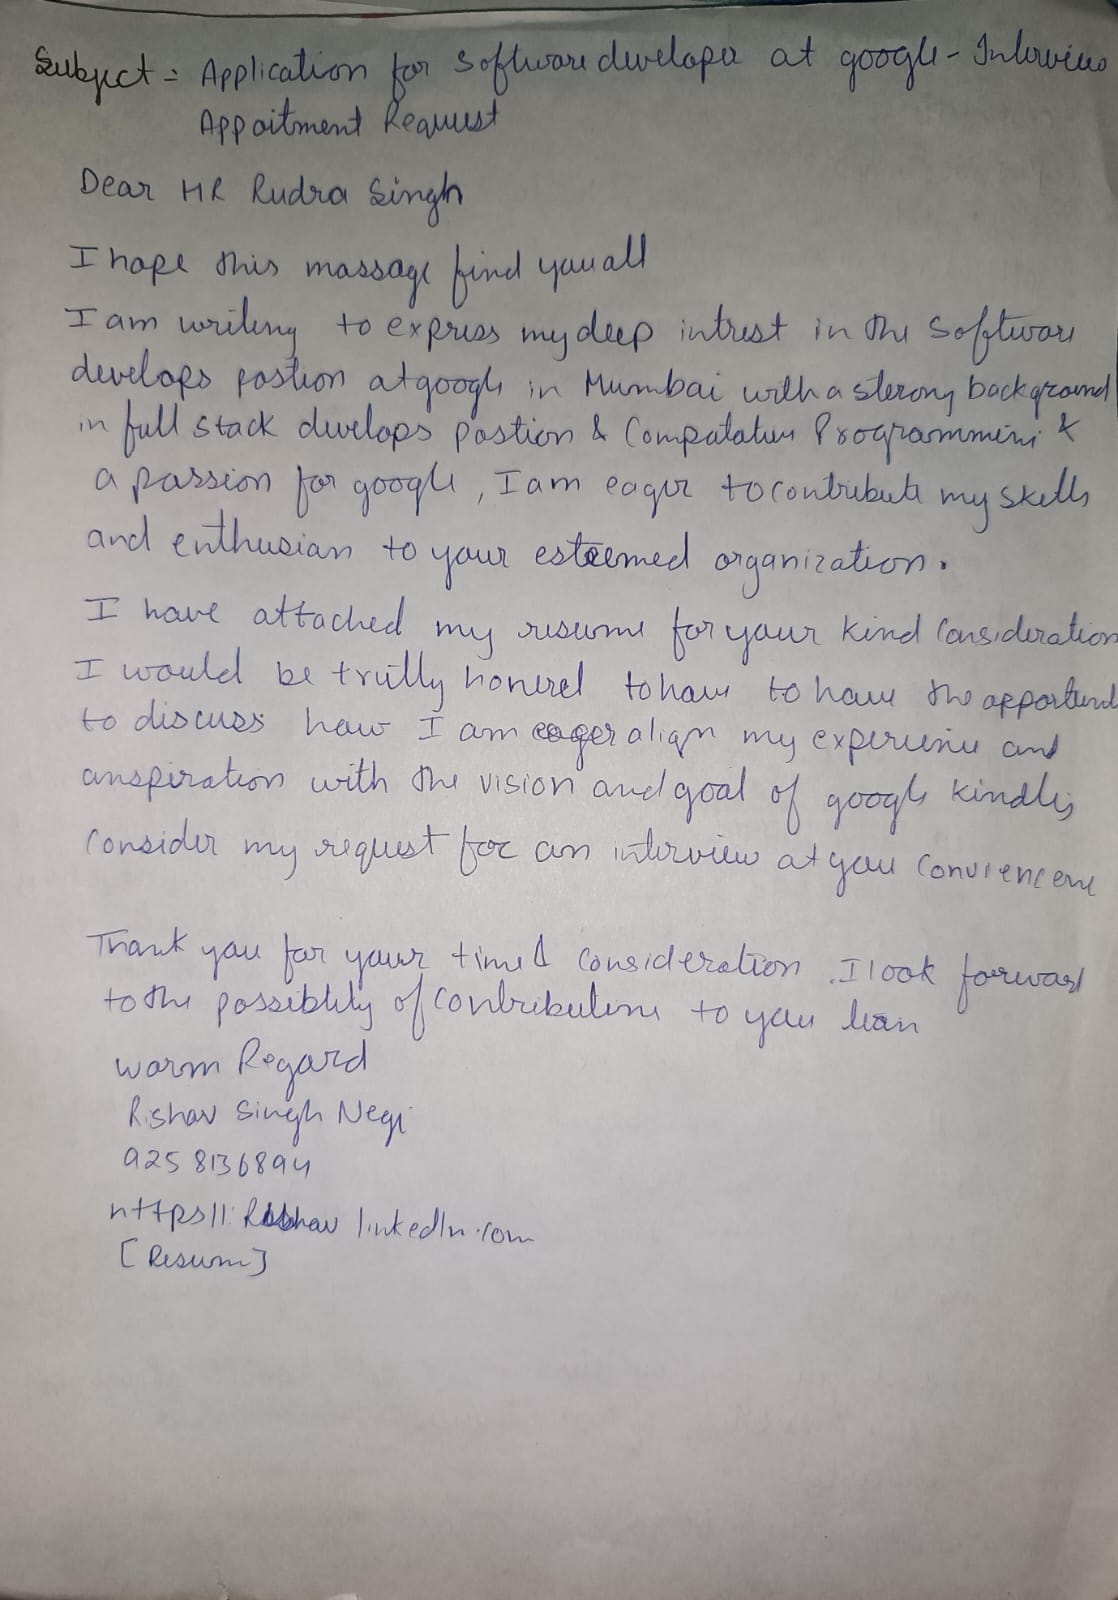 Subject = Application for Software developer at google - Interview
Appoitment Request
Dear HR Rudra Singh
I hope this massage find you all
I am writing to express my deep intrest in the Software
develops postion at google in Mumbai with a sterong background
in full stack develops postion & Compatative Programmini &
a passion for google, I am eager to contribute my skills
and enthusian to your esteemed organization.
I have attached my resume for your kind Consideration
I would be trully honered to have to have the opportunit
to discuss how I am eager align my experienie and
anspiration with the vision and goal of google kindly
Consider my request for an interview at you
Thank you for your time & Consideration. I look forward
to the possiblity of Contributeni to you
warm Regard
Rishav Singh Negi
9258136894
https||: Rishav linkedIn.com
[Resum]